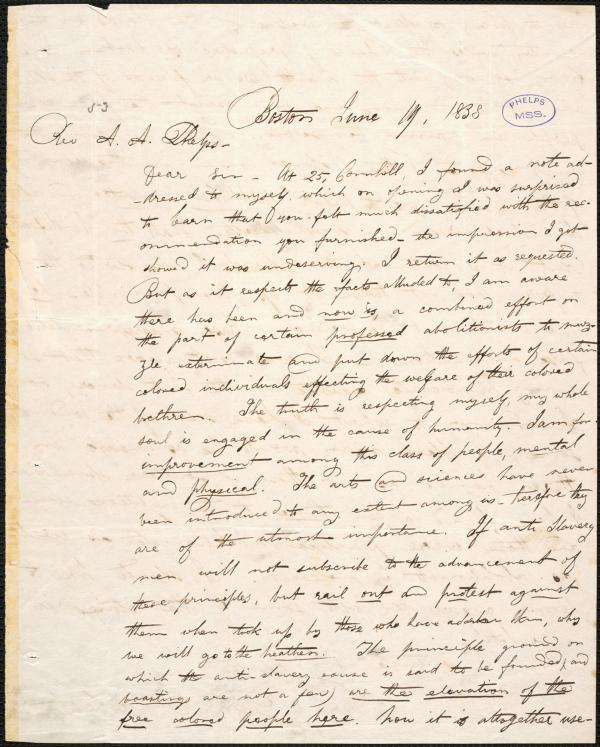 5-3
Boston June 19, 1838
PHELPS
MSS.
Rev A. A. Phelps-
Dear Sir - At 25, Cornhill, I found a note ad-
-dressed to myself, which on opening I was surprised
to learn that you felt much dissatisfied with the rec-
ommendation you furnished- the impression I got
showed it was undeserving. I return it as requested.
But as it respects the facts alluded to, I am aware
there has been and now is, a combined effort on
the part of certain professed abolitionists to muz-
zle, exterminate and put down the efforts of certain
colored individuals effecting the welfare of their colored
brethren. The truth is respecting myself, my whole
soul is engaged in the cause of humanity. I am for
improvement among this class of people, mental
and physical. The arts and sciences have never
been introduced to any extent among us- therefore they
are of the utmost importance. If anti slavery
men will not subscribe to the advancement of
these principles, but rail out and protest against
them when took up by those who have a darker skin, why
we will go to the heathen. The principle ground on
which the anti-slavery cause is said to be founded, and
boasting are not a few, are the elevation of the
free colored people here. Now it is altogether use-